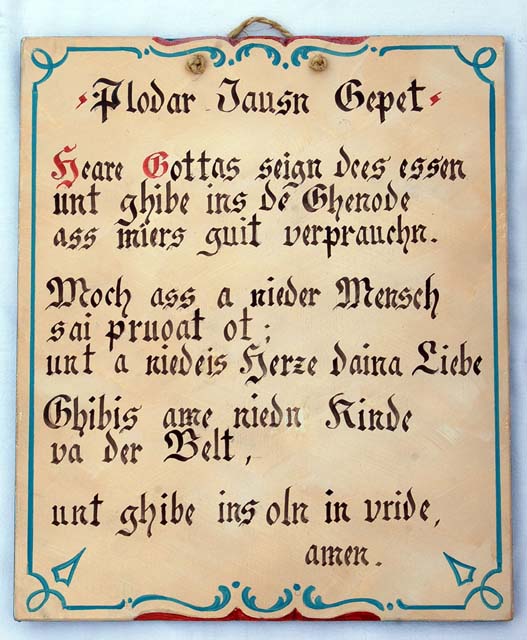 Plodar Jausn Gepet
Heare Gottas seign dees essen
unt ghibe ins de Ghenode
ass miers guit verprauchn.
Moch ass a nieder Mensch
sai pruoat ot;
unt a niedeis Herze daina Liebe
Ghibis ame niedn Kinde
va der Belt,
unt ghibe ins oln in vride,
amen.